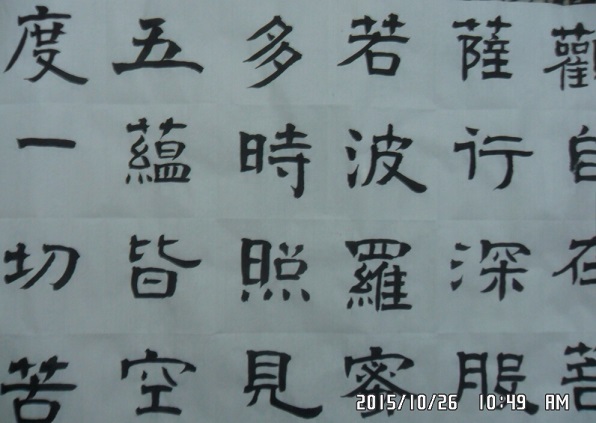 觀自在菩
薩行深般
若波羅蜜
多時照見
五蘊皆空
度一切苦
2015/10/26 10:49 AM